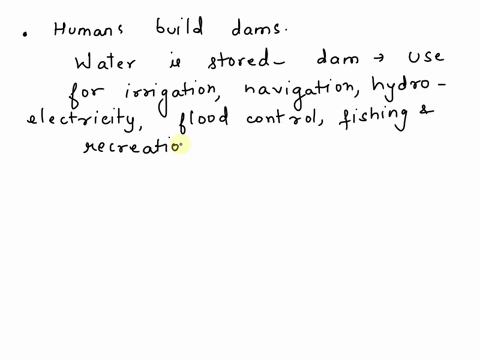 . Humans build dams.
Water is stored- dam → use
for irrigation, navigation, hydro-
electricity, flood control, fishing &
recreatio